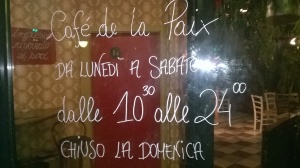 Café de la Paix
DA LUNEDÌ A SABATO
dalle 10³⁰ alle 24⁰⁰
CHIUSO LA DOMENICA